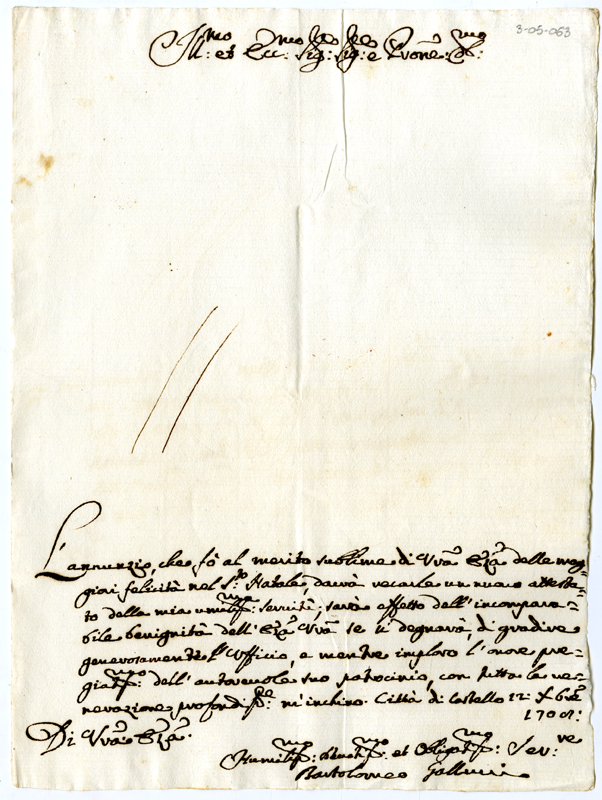 3-05-063
Ill:mo et Ecc:mo Sig:re Sig:re e Prone Col:mo
L'annunzio, che fò al merito sublime di Vrã Ecczã delle mag=
giori felicità nel S.to Natale, dovrà recarle un nuovo attesta=
to della mia umiliss:ma servitù; sarà effetto dell'incompara=
bile benignità dell'Ecczã Vrã se si degnarà, di gradire
generosamente l'Ufficio, e mentre imploro l'onore pre=
giatiss:mo dell'autorevole suo patrocinio, con tutta la ve=
nerazione profondiss:te m'inchino. Città di Castello 12: Xbre
170
Di Vrã Ecczã.
Humiliss:mo Devotiss:mo et Obligatiss:mo Ser:re
Bartolomeo Gallucci